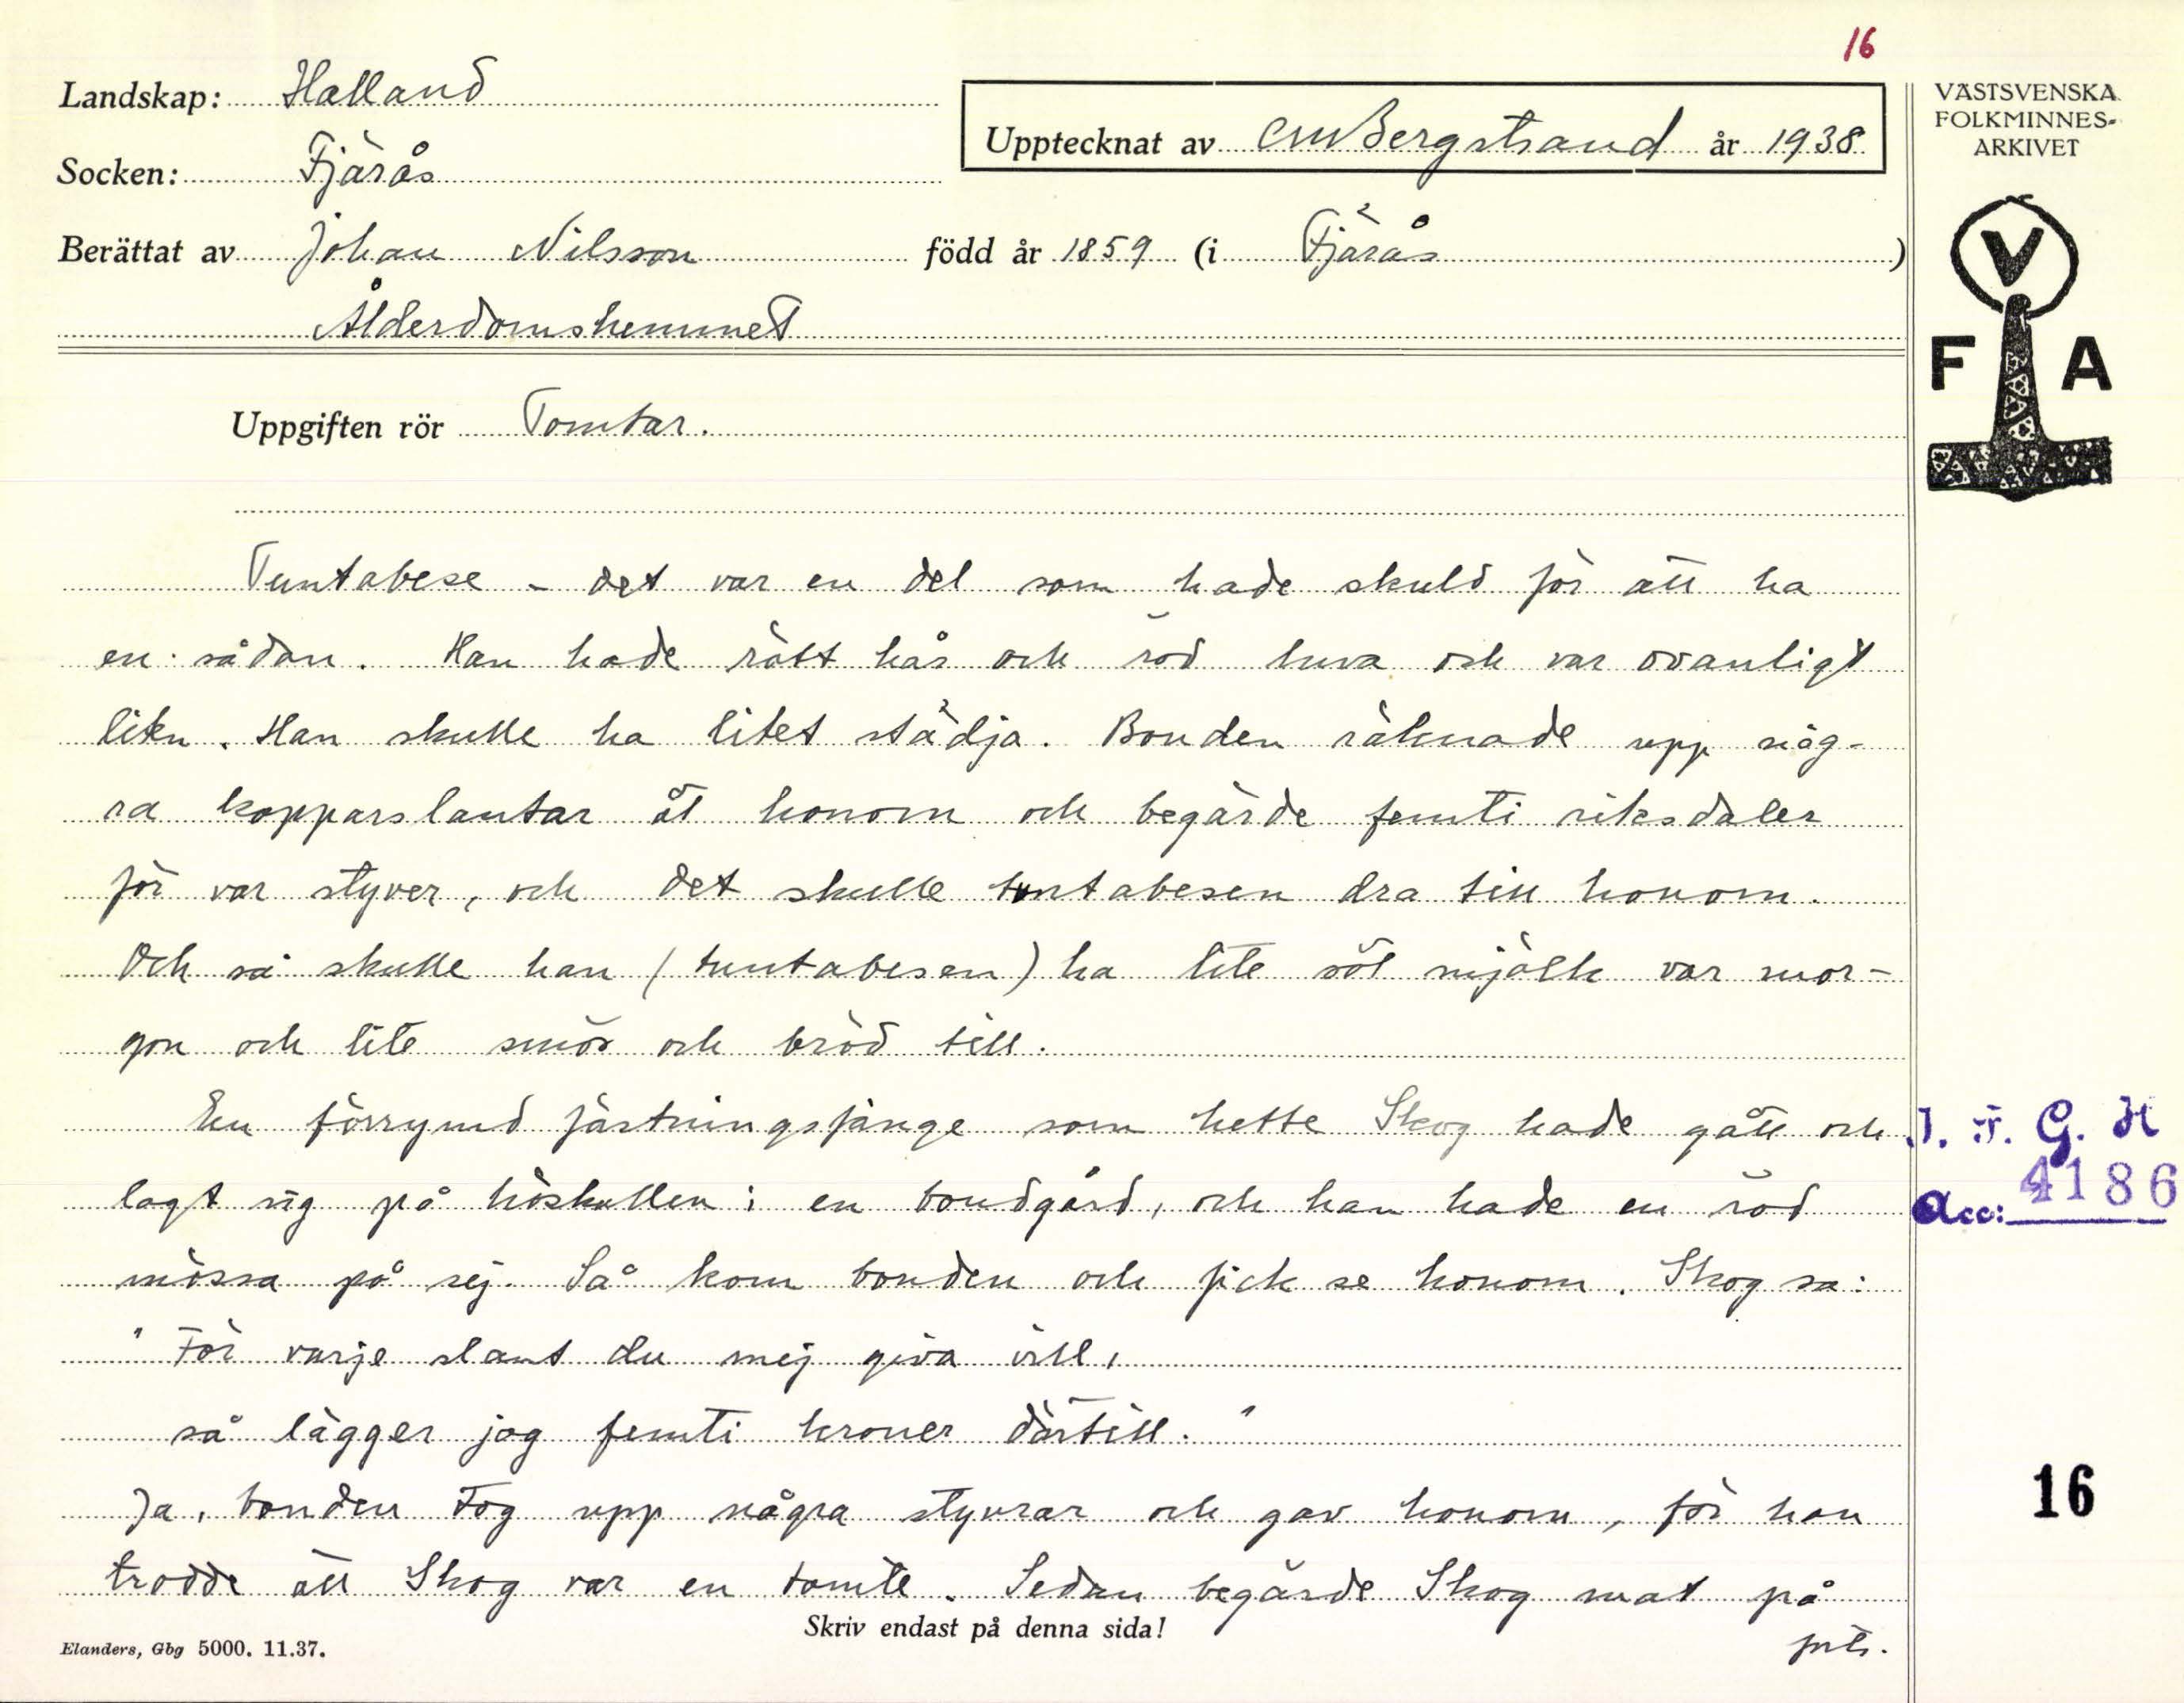 16
Landskap: Halland
Upptecknat av CMBergstrand år 1938
VÄSTSVENSKA
FOLKMINNES-
ARKIVET
Socken: Fjärås
Berättat av Johan Nilsson född år 1859 (i Fjärås)
Ålderdomshemmet
V
F A
Uppgiften rör Tomtar.
Tuntabese - det var en del som hade skuld för att ha
en sådan. Han hade rött hår och röd luva och var ovanligt
liten. Han skulle ha litet städja. Bonden räknade upp någ-
ra kopparslantar åt honom och begärde femti riksdaler
för var styver, och det skulle tuntabesen dra till honom.
Och så skulle han (tuntabesen) ha lite söt mjölk var mor-
gon och lite smör och bröd till.
En förrymd fästningsfånge som hette Skog hade gått och
lagt sig på höskullen i en bondgård, och han hade en röd
mössa på sej. Så kom bonden och fick se honom. Skog sa:
"För varje slant du mej giva vill,
så lägger jag femti kroner därtill."
Ja, bonden tog upp några styvrar och gav honom, för han
trodde att Skog var en tomte. Sedan begärde Skog mat på
I. F. G. H
Acc: 4186
16
Skriv endast på denna sida!
forts.
Elanders, Gbg 5000. 11.37.